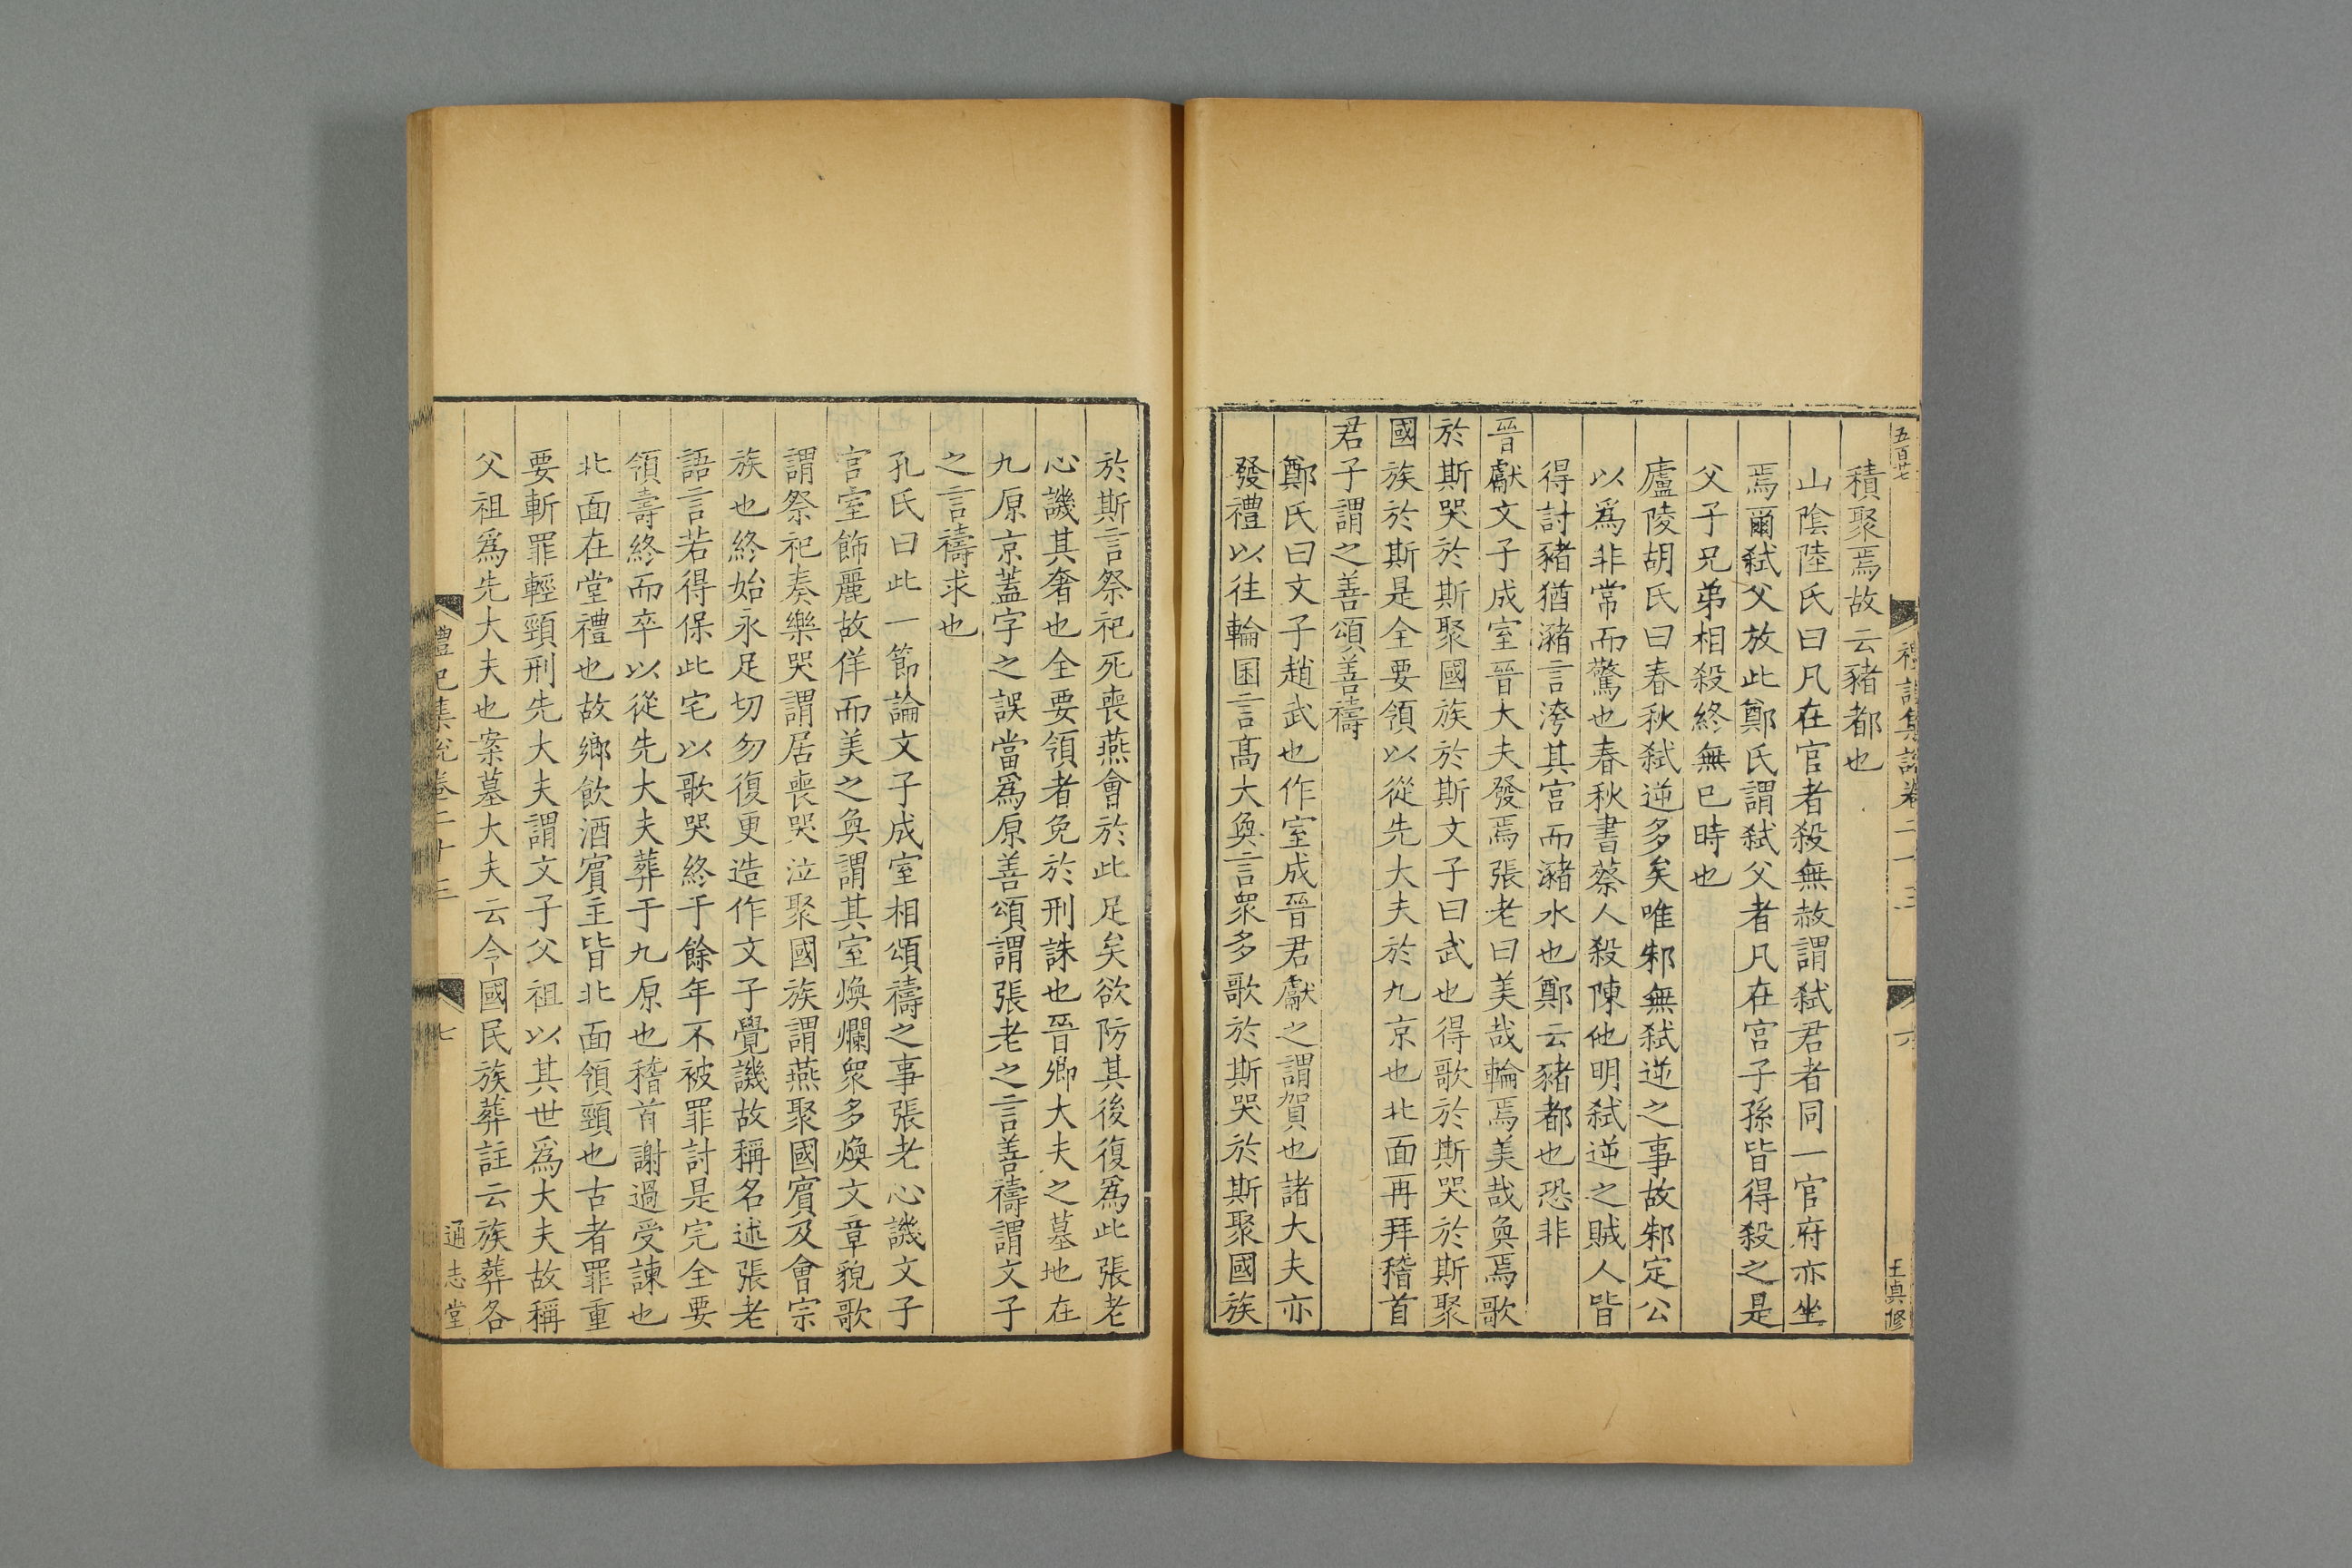 五百廿七
禮記集說卷二十三
六
王真修
積聚焉故云豬都也
山陰陸氏曰凡在官者殺無赦謂弑君者同一官府亦坐
焉爾弑父放此鄭氏謂弑父者凡在宫子孫皆得殺之是
父子兄弟相殺終無已時也
廬陵胡氏曰春秋弑逆多矣唯邾無弑逆之事故邾定公
以爲非常而驚也春秋書蔡人殺陳佗明弑逆之賊人皆
得討豬猶瀦言洿其宫而瀦水也鄭云豬都也恐非
晉獻文子成室晉大夫發焉張老曰美哉輪焉美哉奐焉歌
於斯哭於斯聚國族於斯文子曰武也得歌於斯哭於斯聚
國族於斯是全要領以從先大夫於九京也北面再拜稽首
君子謂之善頌善禱
鄭氏曰文子趙武也作室成晉君獻之謂賀也諸大夫亦
發禮以往輪囷言髙大奐言衆多歌於斯哭於斯聚國族
於斯言祭祀死喪燕會於此足矣欲防其後復爲此張老
心譏其奢也全要領者免於刑誅也晉卿大夫之墓地在
九原京蓋字之誤當爲原善頌謂張老之言善禱謂文子
之言禱求也
孔氏曰此一節論文子成室相頌禱之事張老心譏文子
宫室飾麗故佯而美之奐謂其室煥爛衆多煥文章貌歌
謂祭祀奏樂哭謂居喪哭泣聚國族謂燕聚國賓及會宗
族也終始永足切勿復更造作文子覺譏故稱名述張老
語言若得保此宅以歌哭終于餘年不被罪討是完全要
領壽終而卒以從先大夫葬于九原也稽首謝過受諫也
北面在堂禮也故鄉飲酒賓主皆北面領頸也古者罪重
要斬罪輕頸刑先大夫謂文子父祖以其世爲大夫故稱
父祖爲先大夫也案墓大夫云令國民族葬註云族葬各
禮記集說卷二十三
七
通志堂